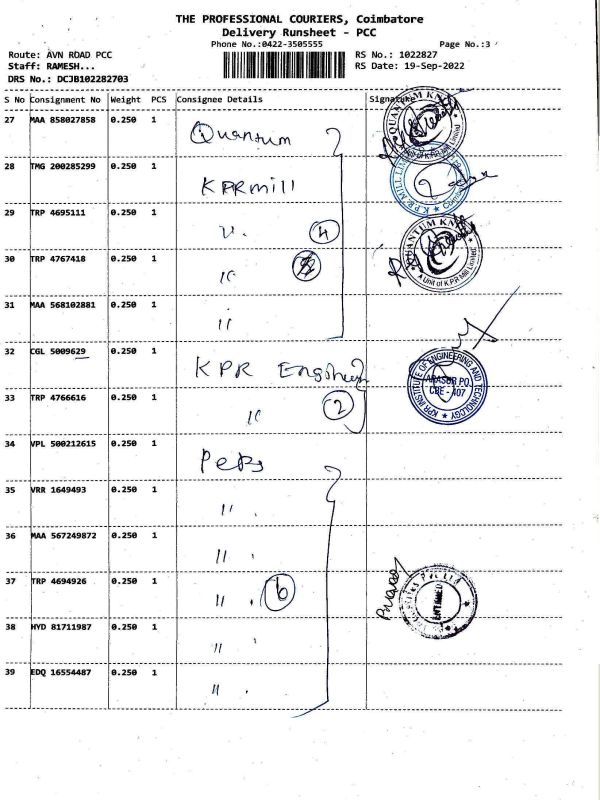 THE PROFESSIONAL COURIERS, Coimbatore
Delivery Runsheet - PCC
Phone No.:0422-3505555 Page No.:3
Route: AVN ROAD PCC RS No.: 1022827
Staff: RAMESH... RS Date: 19-Sep-2022
DRS No.: DCJB102282703
S No Consignment No Weight PCS Consignee Details Signature
27 MAA 858027858 0.250 1 Quantum
QUANTUM KNITS
A Unit of K.P.R Mill Limited
28 TMG 200285299 0.250 1 KPR mill
K.P.R. MILL LIMITED
29 TRP 4695111 0.250 1 ״ 4
QUANTUM KNITS
A Unit of K.P.R Mill Limited
30 TRP 4767418 0.250 1 ״
31 MAA 568102881 0.250 1 ״
32 CGL 5009629 0.250 1 KPR Engineer
KPR INSTITUTE OF ENGINEERING AND TECHNOLOGY
ARASUR PO.
CBE - 407
33 TRP 4766616 0.250 1 ״ 2
34 VPL 500212615 0.250 1 Peps
35 VRR 1649493 0.250 1 ״
36 MAA 567249872 0.250 1 ״
37 TRP 4694926 0.250 1 ״ 6
Pvt Ltd
38 HYD 81711987 0.250 1 ״
39 EDQ 16554487 0.250 1 ״